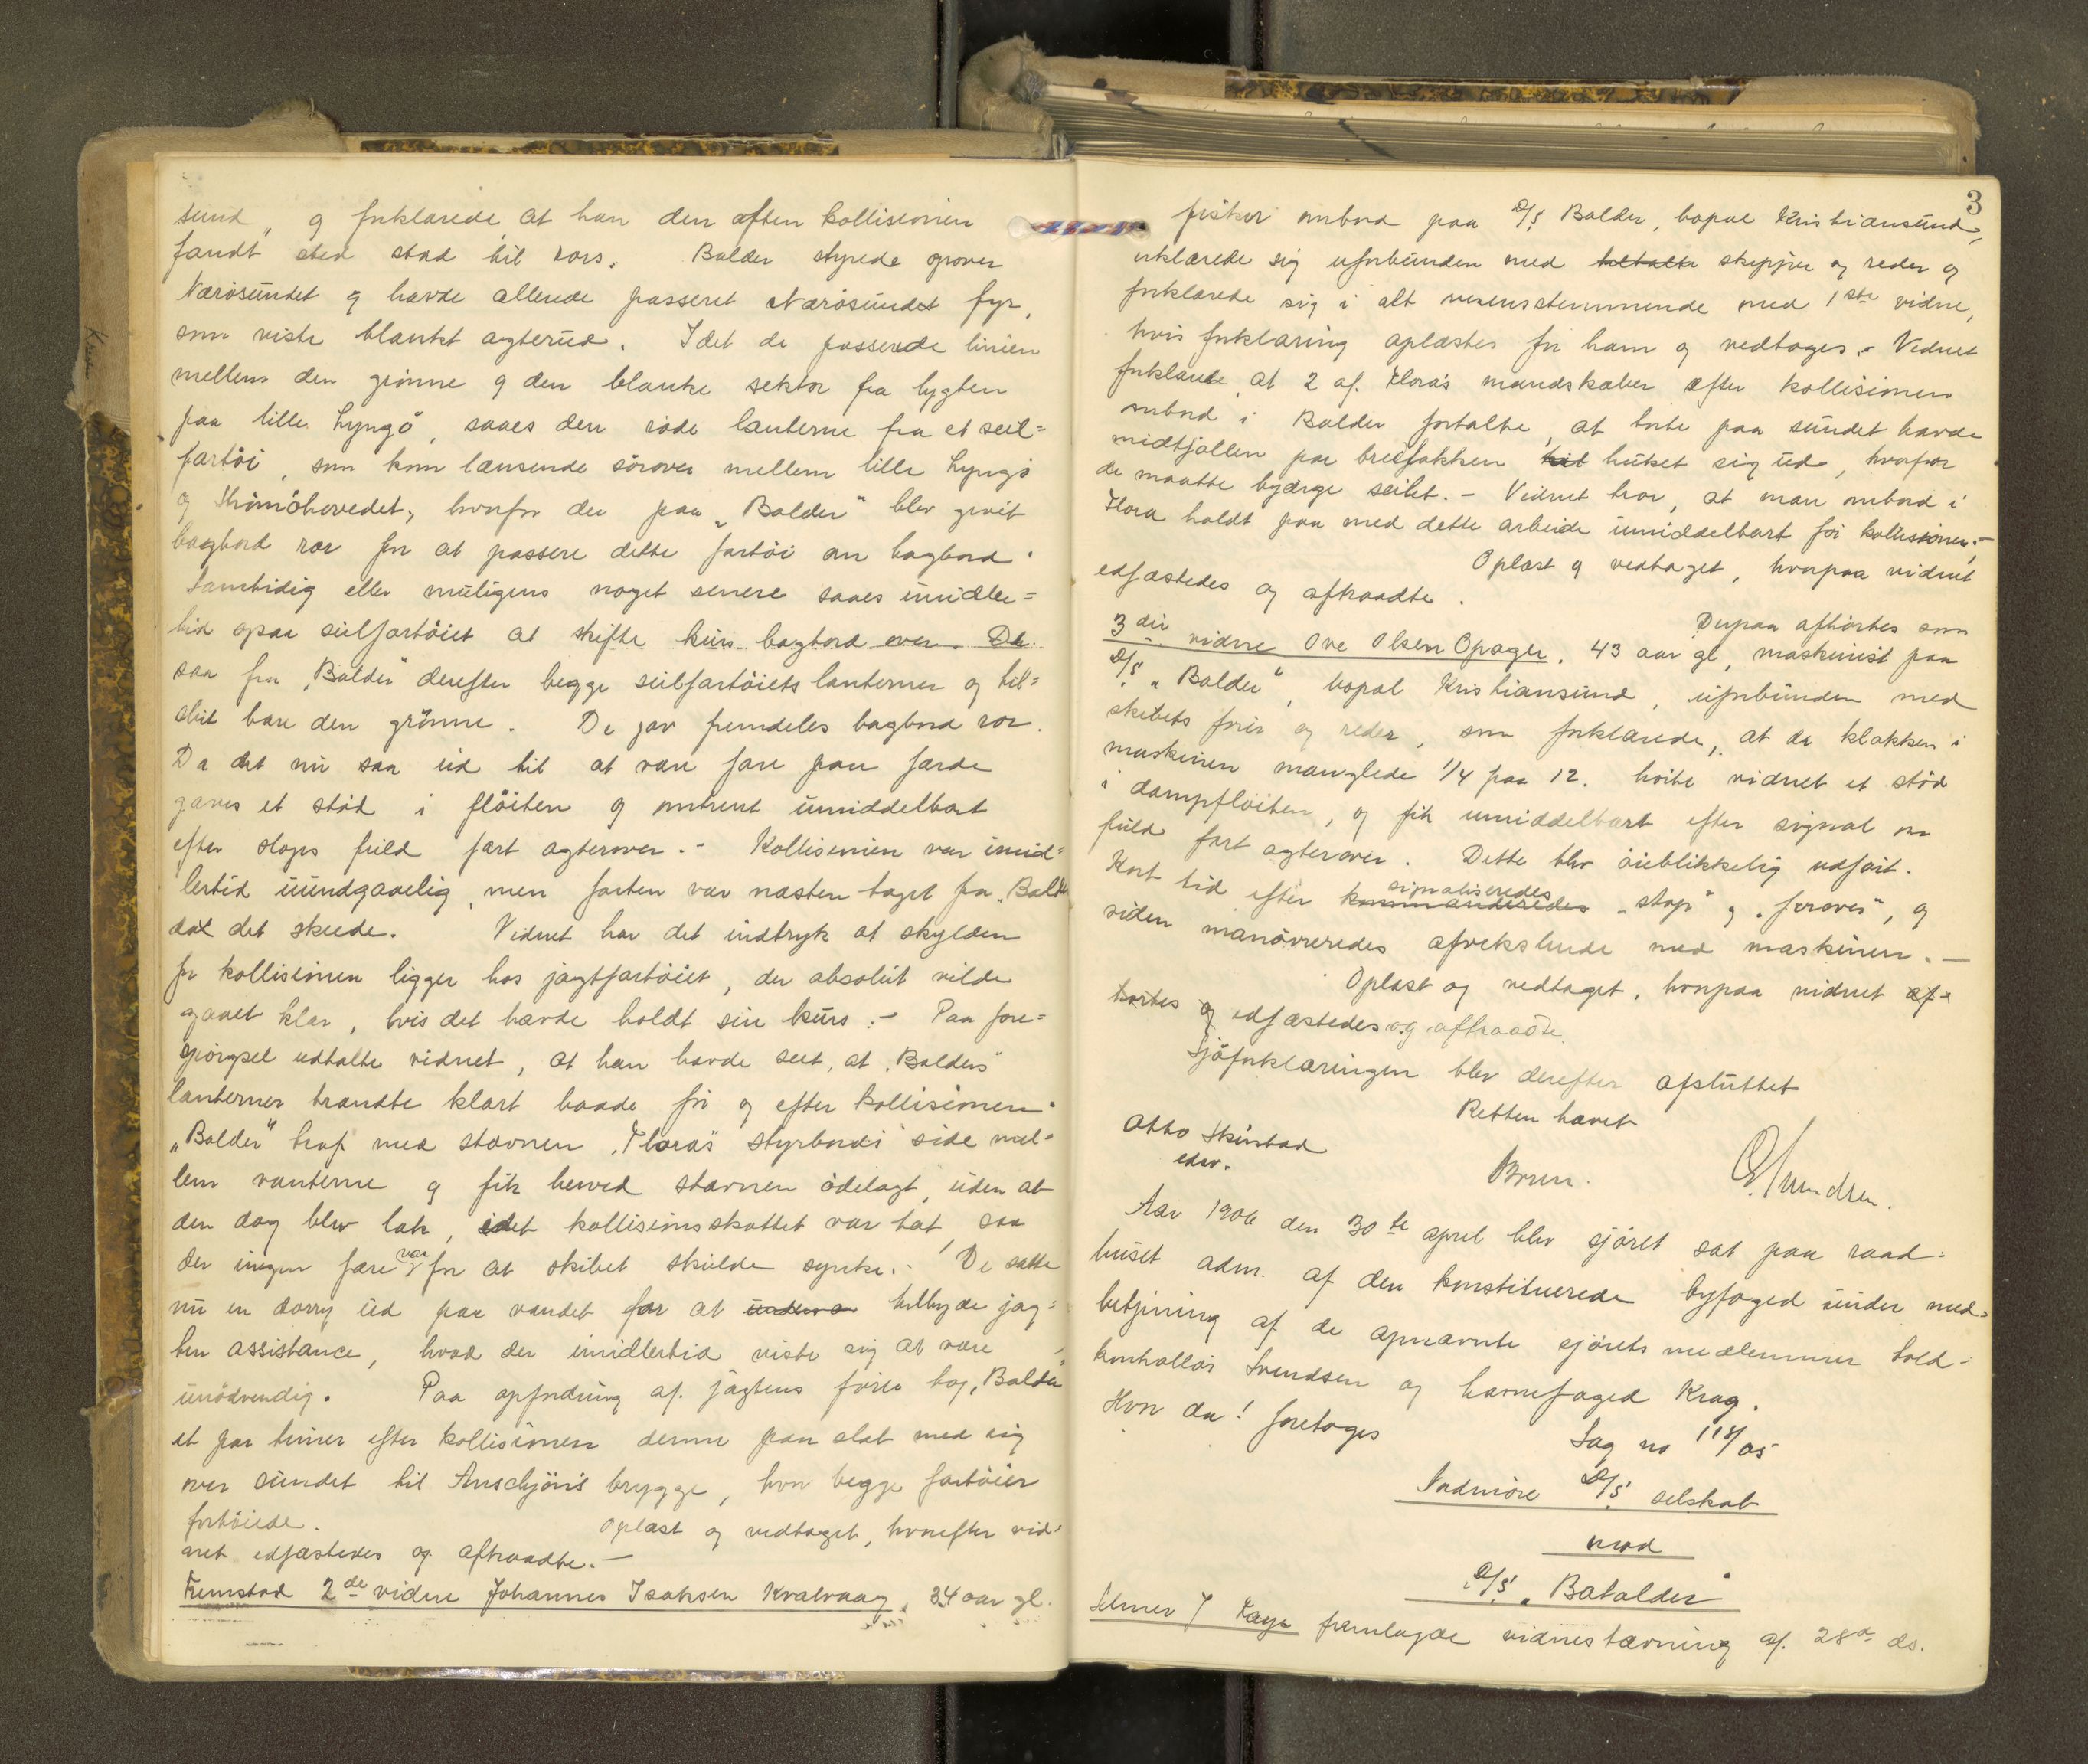 sund, og forklarede, at han den aften kollisionen
fandt sted stod til rors. Balder styrede opover
Nærösundet og havde allerede passeret Nærösundet fyr,
som viste blankt agterud. Idet de passerede linien
mellem den grönne og den blanke sektor fra lygten
paa lille Lyngö, saaes den röde lanterne fra et seil=
fartöi, som kom lænsende sörover mellem lille Lyngö
og hovedet, hvorfor der paa "Balder" blev givit
bagbord ror for at passere dette fartöi om bagbord.
Samtidig eller muligens noget senere saaes imidler=
tid ogsaa seilfartöiet at skifte kurs bagbord over. De
saa fra "Balder" derefter begge seilfartöiets lanterner og til=
slut bare den grönne. De gav fremdeles bagbord ror.
Da det nu saa ud til at være fare paa færde
gaves et stöd i flöiten og omtrent umiddelbart
efter sloges fuld fart agterover. - Kollisionen var imid=
lertid uundgaaelig, men farten var næsten taget fra "Balder
da det skede. Vidnet har det indtryk at skylden
for kollisionen ligger hos jagtfartöiet, der absolut vilde
gaaet klar, hvis det havde holdt sin kurs. - Paa fore=
spörgsel udtalte vidnet, at han havde seet, at "Balders"
lanterner brandte klart baade för og efter kollisionen.
"Balder" traf med stævnen "Floras" styrbords side mel=
lem vanterne og fik herved stævnen ödelagt, uden at
den dog blev læk, idet kollisionsskottet var tæt, saa
der ingen fare var for at skibet skulde synke. - De satte
nu en dorry ud paa vandet for at tilbyde jag=
ten assistance, hvad der imidlertid viste sig at være
unödvendig. Paa opfordring af jagtens förer tog "Balder"
et par timer efter kollisionen denne paa slæb med sig
over sundet til brygge, hvor begge fartöier
fortöiede. Oplæst og vedtaget, hvorefter vid=
net edfæstedes og aftraadte. -
Fremstod 2de vidne Johannes Isaksen Kvalvaag, 34 aar gl.
3
fisker ombord paa D/S Balder, bopæl Kristiansund,
erklærede sig uforbunden med skipper og reder og
forklarede sig i alt overensstemmende med 1ste vidne,
hvis forklaring oplæstes for ham og vedtoges. - Vidnet
forklarede, at 2 af Flora's mandskaber efter kollisionen
ombord i Balder fortalte, at borte paa sundet havde
midtfallen paa bredfokken huket sig ud, hvorfor
de maatte bjærge seilet. - Vidnet tror, at man ombord i
Flora holdt paa med dette arbeide umiddelbart för kollisionen. -
Oplæst og vedtaget, hvorpaa vidnet
edfæstedes og aftraadte.
Derpaa afhörtes som
3die vidne Ove Olsen Opager, 43 aar gl, maskinist paa
D/S "Balder", bopæl Kristiansund, uforbunden med
skibets förer og reder, som forklarede, at da klokken i
maskinen manglede 1/4 paa 12. hörte vidnet et stöd
i dampflöiten, og fik umiddelbart efter signal om
fuld fart agterover. Dette blev öieblikkelig udfört.
Kort tid efter kommanderedes signaliseredes "stop" og "forover", og
siden manövreredes afvekslende med maskinen. -
Oplæst og vedtaget, hvorpaa vidnet af=
hörtes og edfæstedes og aftraadte.
Sjöforklaringen blev derefter afsluttet
Retten hævet
Otto Skinstad
edsv.
Brun.
Svendsen.
Aar 1906 den 30te april blev sjöret sat paa raad=
huset adm. af den konstituerede byfoged under med=
betjening af de opnævnte sjörets medlemmer told=
kontrollör Svendsen og havnefoged Krag.
Hvor da! foretoges
Sag no 118/05
Nordmöre D/S selskab
mod
D/S "Batalder"
framlagde vidnestævning af 28de ds.